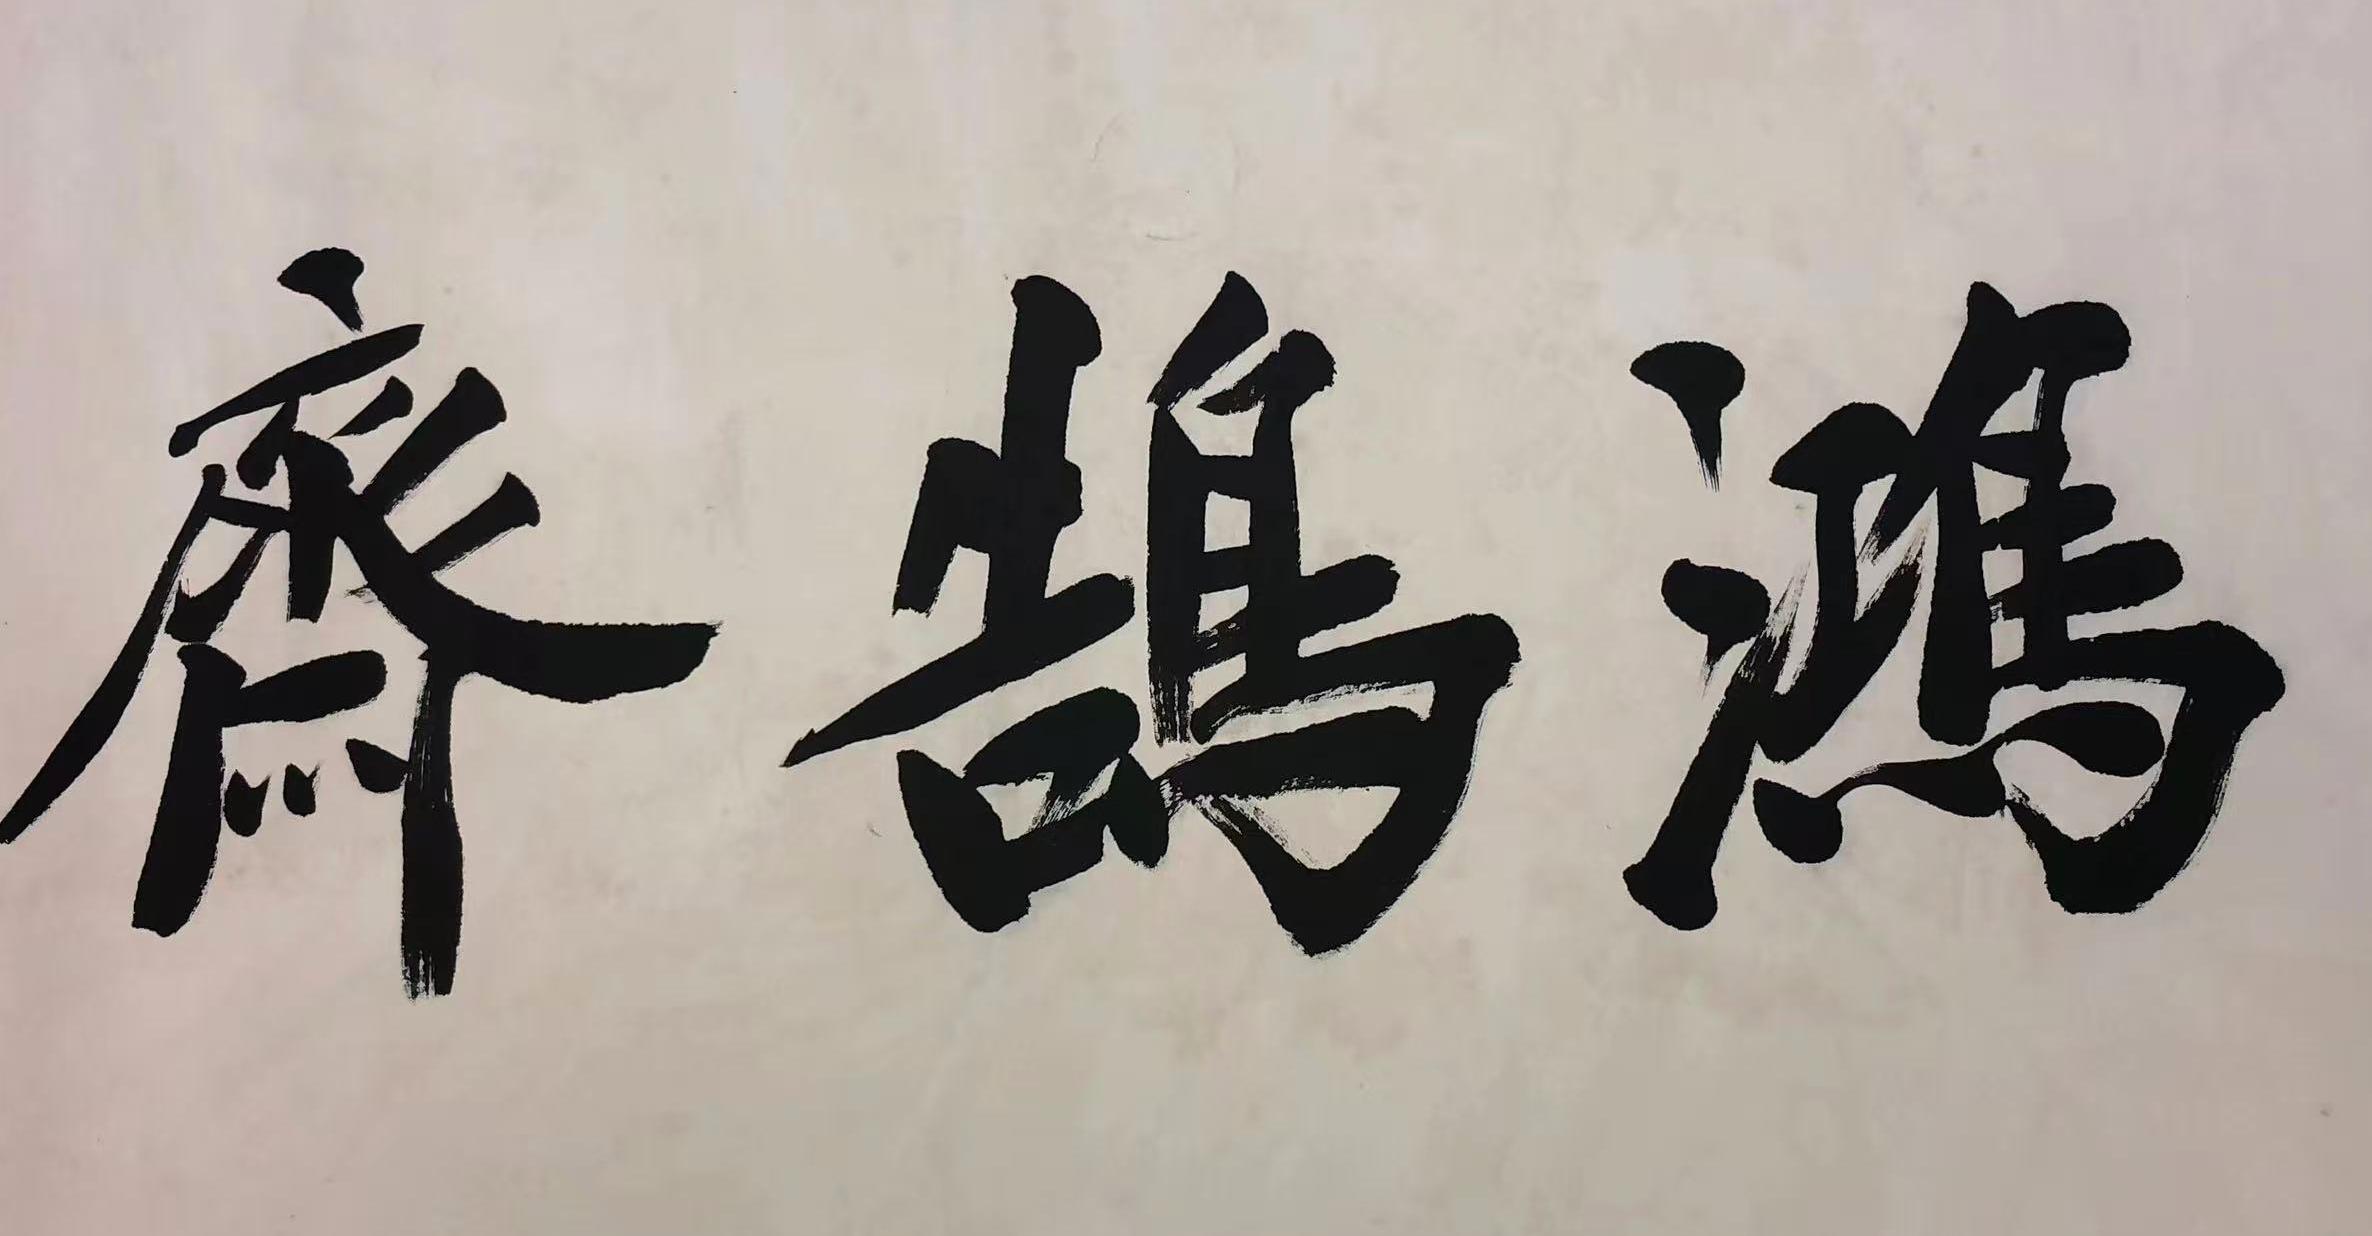 鴻鵠齋